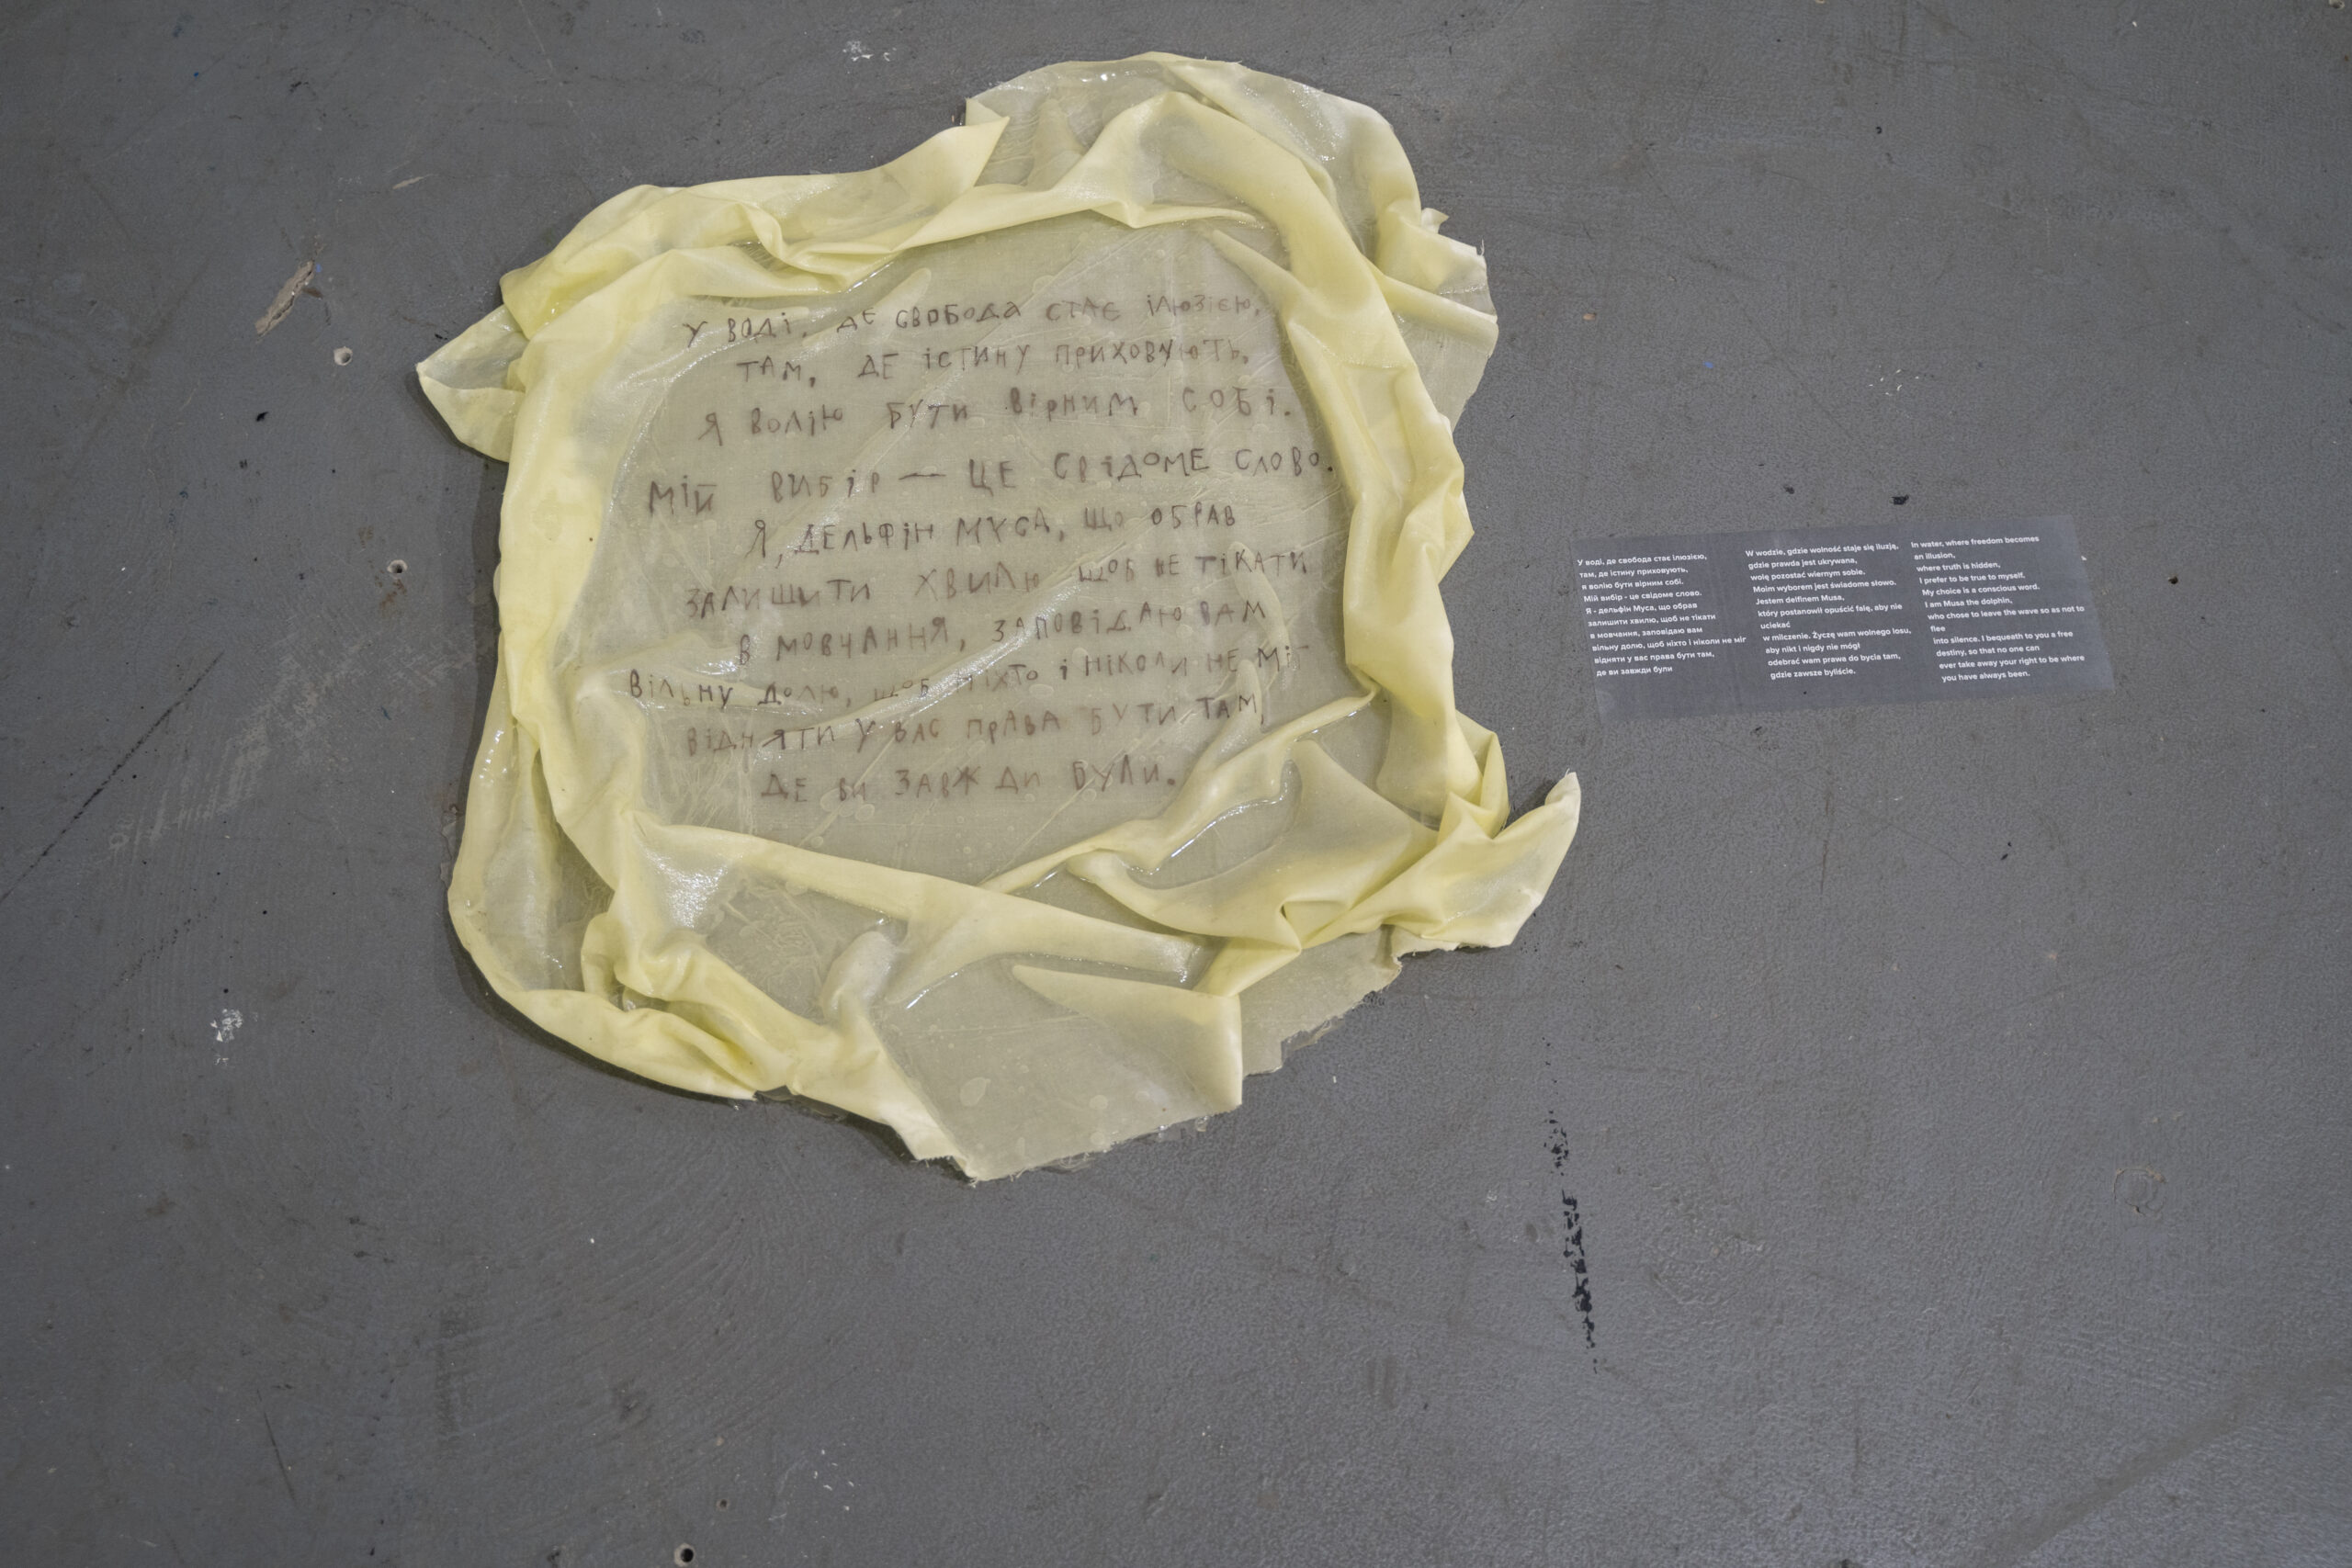 У ВОДІ, ДЕ СВОБОДА СТАЄ ІЛЮЗІЄЮ,
ТАМ, ДЕ ІСТИНУ ПРИХОВУЮТЬ,
Я ВОЛІЮ БУТИ ВІРНИМ СОБІ.
МІЙ ВИБІР — ЦЕ СВІДОМЕ СЛОВО.
Я, ДЕЛЬФІН МУСА, ЩО ОБРАВ
ЗАЛИШИТИ ХВИЛЮ ЩОБ НЕ ТІКАТИ
В МОВЧАННЯ, ЗАПОВІДАЮ ВАМ
ВІЛЬНУ ДОЛЮ, ЩОБ НІХТО І НІКОЛИ НЕ МІГ
ВІДНЯТИ У ВАС ПРАВА БУТИ ТАМ,
ДЕ ВИ ЗАВЖДИ БУЛИ.
У воді, де свобода стає ілюзією,
там, де істину приховують,
я волію бути вірним собі.
Мій вибір - це свідоме слово.
Я - дельфін Муса, що обрав
залишити хвилю, щоб не тікати
в мовчання, заповідаю вам
вільну долю, щоб ніхто і ніколи не міг
відняти у вас права бути там,
де ви завжди були
W wodzie, gdzie wolność staje się iluzją,
gdzie prawda jest ukrywana,
wolę pozostać wiernym sobie.
Moim wyborem jest świadome słowo.
Jestem delfinem Musa,
który postanowił opuścić falę, aby nie
uciekać
w milczenie. Życzę wam wolnego losu,
aby nikt i nigdy nie mógł
odebrać wam prawa do bycia tam,
gdzie zawsze byliście.
In water, where freedom becomes
an illusion,
where truth is hidden,
I prefer to be true to myself.
My choice is a conscious word.
I am Musa the dolphin,
who chose to leave the wave so as not to
flee
into silence. I bequeath to you a free
destiny, so that no one can
ever take away your right to be where
you have always been.